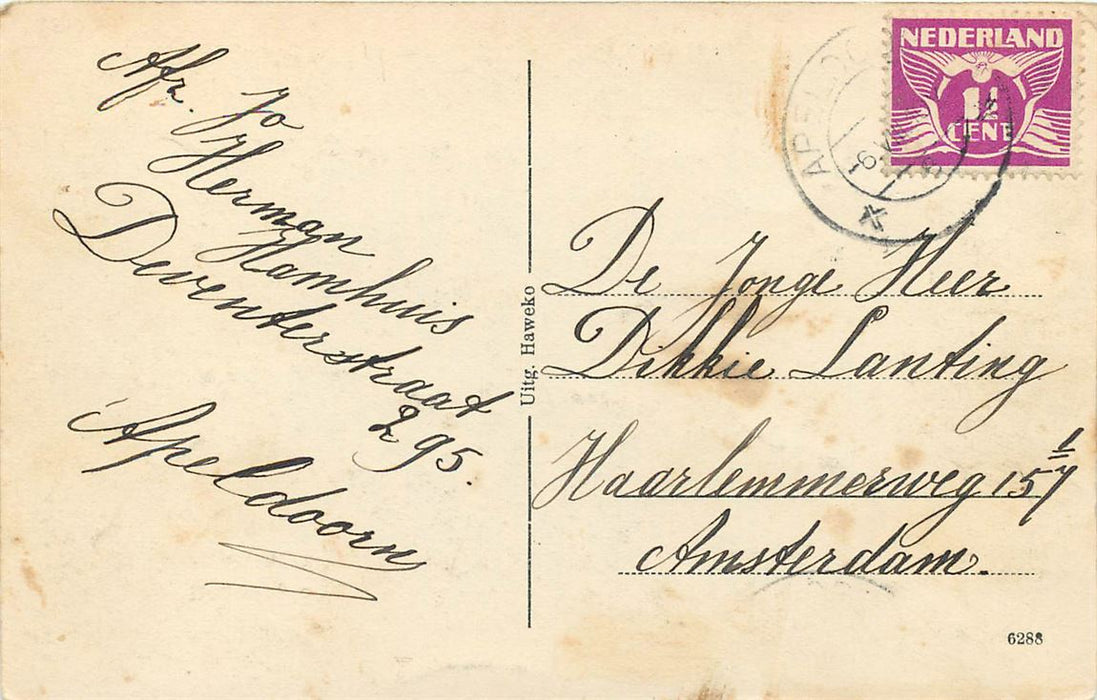 Afz. Jo
Herman
Hamhuis
Deventerstraat
295.
Apeldoorn
Uitg. Haweko
NEDERLAND
1½
CENT
De Jonge Heer
Dikkie Lanting
Haarlemmerweg 157 1/
Amsterdam.
6288